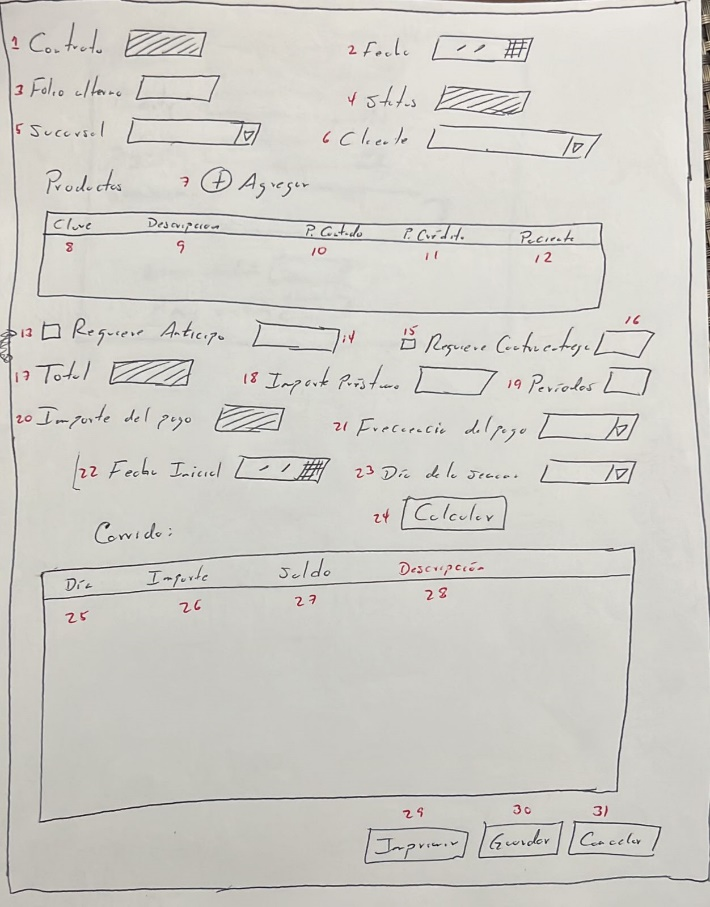 1 Contrato
2 Fecha
3 Folio alterno
4 Status
5 Sucursal
6 Cliente
Productos 7 + Agregar
Clave Descripcion P. Contado P. Crédito Paciente
8 9 10 11 12
13 Requiere Anticipo 14
15 Requiere Contraentrega 16
17 Total
18 Importe Préstamo
19 Periodos
20 Importe del pago
21 Frecuencia del pago
22 Fecha Inicial
23 Día de la semana
24 Calcular
Corrida:
Día Importe Saldo Descripción
25 26 27 28
29 30 31
Imprimir Guardar Cancelar